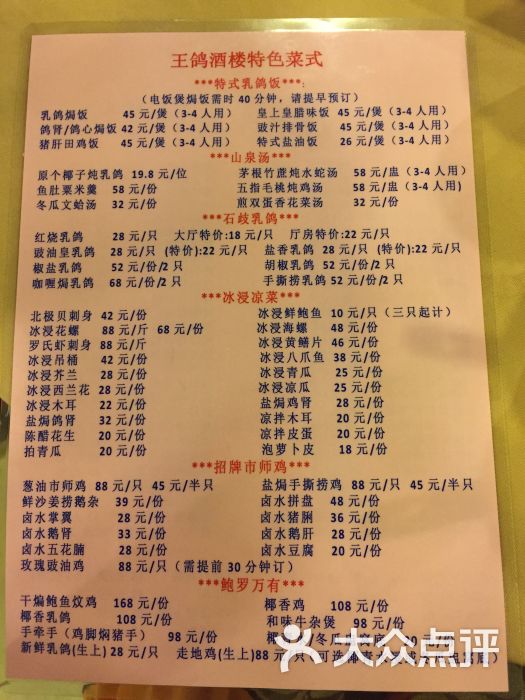 王鸽酒楼特色菜式
***特式乳鸽饭***:
（电饭煲焗饭需时 40 分钟，请提早预订）
乳鸽焗饭 45 元/煲（3-4 人用） 皇上皇腊味饭 45 元/煲（3-4 人用）
鸽肾/鸽心焗饭 42 元/煲（3-4 人用） 豉汁排骨饭 45 元/煲（3-4 人用）
猪肝田鸡饭 45 元/煲（3-4 人用） 特式盐油饭 26 元/煲（3-4 人用）
***山泉汤***
原个椰子炖乳鸽 19.8 元/位 茅根竹蔗炖水蛇汤 58 元/盅（3-4 人用）
鱼肚粟米羹 58 元/份 五指毛桃炖鸡汤 58 元/盅（3-4 人用）
冬瓜文蛤汤 32 元/份 煎双蛋香花菜汤 32 元/份
***石歧乳鸽***
红烧乳鸽 28 元/只 大厅特价:18 元/只 厅房特价:22 元/只
豉油皇乳鸽 28 元/只 （特价):22 元/只 盐香乳鸽 28 元/只（特价):22 元/只
椒盐乳鸽 52 元/份/2 只 胡椒乳鸽 52 元/份/2 只
咖喱焗乳鸽 68 元/份/2 只 手撕捞乳鸽 52 元/份/2 只
***冰浸凉菜***
北极贝刺身 42 元/份 冰浸鲜鲍鱼 10 元/只（三只起计）
冰浸花螺 88 元/斤 68 元/份 冰浸海螺 48 元/份
罗氏虾刺身 88 元/斤 冰浸黄鳝片 46 元/份
冰浸吊桶 42 元/份 冰浸八爪鱼 38 元/份
冰浸芥兰 28 元/份 冰浸青瓜 25 元/份
冰浸西兰花 28 元/份 冰浸凉瓜 25 元/份
冰浸木耳 22 元/份 盐焗鸡肾 28 元/份
盐焗鸽肾 32 元/份 凉拌木耳 20 元/份
陈醋花生 20 元/份 凉拌皮蛋 20 元/份
拍青瓜 20 元/份 泡萝卜皮 18 元/份
***招牌市师鸡***
葱油市师鸡 88 元/只 45 元/半只 盐焗手撕捞鸡 88 元/只 45 元/半只
鲜沙姜捞鹅杂 39 元/份 卤水拼盘 48 元/份
卤水掌翼 28 元/份 卤水猪脷 36 元/份
卤水鹅肾 33 元/份 卤水鹅肝 28 元/份
卤水五花腩 28 元/份 卤水豆腐 20 元/份
玫瑰豉油鸡 88 元/只（需提前 30 分钟订）
***鲍罗万有***
干煸鲍鱼炆鸡 168 元/份 椰香鸡 108 元/份
椰香乳鸽 108 元/份 和味牛杂煲 98 元/份
手牵手（鸡脚焖猪手） 98 元/份 20 元/份
新鲜乳鸽(生上) 28 元/只 走地鸡(生上)88 元/只
大众点评